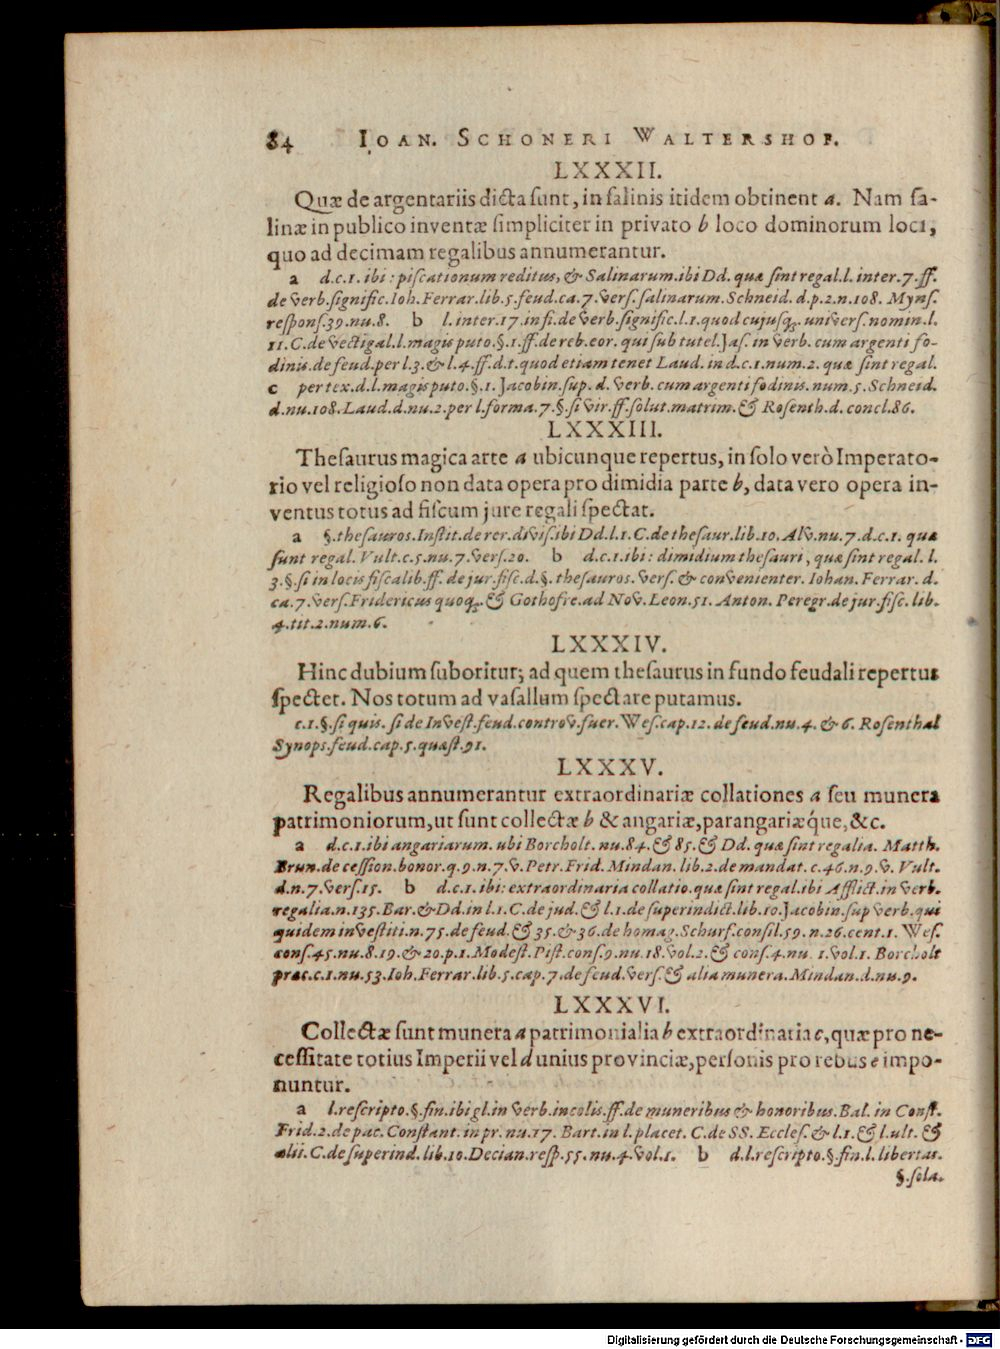 84 IOAN. SCHONERI WALTERSHOF.
LXXXII.
Quæ de argentariis dicta ſunt, in ſalinis itidem obtinent a. Nam ſa-
linæ in publico inventæ ſimpliciter in privato b loco dominorum loci,
quo ad decimam regalibus annumerantur.
a d.c.1. ibi: piſcationum reditus, & Salinarum. ibi Dd. quæ ſint regal. l. inter. 7. ff.
de verb. ſignific. Ioh. Ferrar. lib. 5. feud. ca. 7. verſ. ſalinarum. Schneid. d. p. 2. n. 108. Mynſ.
reſponſ. 39. nu. 8. b l. inter. 17. in fi. de verb. ſignific. l. 1. quod cujuſq; univerſ. nomin. l.
11. C. de vectigal. l. magis puto. §. 1. ff. de reb. eor. qui ſub tutel. Jaſ. in verb. cum argenti fo-
dinis. de feud. per l. 3. & l. 4. ff. d. t. quod etiam tenet Laud. in d. c. 1. num. 2. quæ ſint regal.
c per tex. d. l. magis puto. §. 1. Jacobin. ſup. d. verb. cum argenti fodinis. num. 5. Schneid.
d. nu. 108. Laud. d. nu. 2. per l. forma. 7. §. ſi vir. ff. ſolut. matrim. & Roſenth. d. concl. 86.
LXXXIII.
Theſaurus magica arte a ubicunque repertus, in ſolo verò Imperato-
rio vel religioſo non data opera pro dimidia parte b, data vero opera in-
ventus totus ad fiſcum jure regali ſpectat.
a §. theſauros. Inſtit. de rer. diviſ. ibi Dd. l. 1. C. de theſaur. lib. 10. Alv. nu. 7. d. c. 1. quæ
ſunt regal. Vult. c. 5. nu. 7. verſ. 20. b d. c. 1. ibi: dimidium theſauri, quæ ſint regal. l.
3. §. ſi in locis fiſcalib. ff. de jur. fiſc. d. §. theſauros. verſ. & convenienter. Iohan. Ferrar. d.
ca. 7. verſ. Fridericus quoq; & Gothofre. ad Nov. Leon. 51. Anton. Peregr. de jur. fiſc. lib.
4. tit. 2. num. 6.
LXXXIV.
Hinc dubium ſuboritur; ad quem theſaurus in fundo feudali repertus
ſpectet. Nos totum ad vaſallum ſpectare putamus.
c. 1. §. ſi quis. ſi de Inveſt. feud. controv. fuer. Weſ. cap. 12. de feud. nu. 4. & 6. Roſenthal
Synopſ. feud. cap. 5. quæſt. 91.
LXXXV.
Regalibus annumerantur extraordinariæ collationes a ſeu munera
patrimoniorum, ut ſunt collectæ b & angariæ, parangariǽque, &c.
a d. c. 1. ibi angariarum. ubi Borcholt. nu. 84. & 85. & Dd. quæ ſint regalia. Matth.
Brun. de ceſſion. bonor. q. 9. n. 7. v. Petr. Frid. Mindan. lib. 2. de mandat. c. 46. n. 9. v. Vult.
d. n. 7. verſ. 15. b d. c. 1. ibi: extraordinaria collatio. quæ ſint regal. ibi Afflict. in verb.
regalia. n. 135. Bar. & Dd. in l. 1. C. de jud. & l. 1. de ſuperindict. lib. 10. Jacobin. ſup verb. qui
quidem inveſtiti. n. 75. de feud. & 35. & 36. de homag. Schurf. conſil. 59. n. 26. cent. 1. Weſ.
conſ. 45. nu. 8. 19. & 20. p. 1. Modeſt. Piſt. conſ. 9. nu. 18. vol. 2. & conſ. 4. nu. 1. vol. 1. Borcholt
præc. c. 1. nu. 53. Ioh. Ferrar. lib. 5. cap. 7. de feud. verſ. & alia munera. Mindan. d. nu. 9.
LXXXVI.
Collectæ ſunt munera a patrimonialia b extraordinatia c, quæ pro ne-
ceſſitate totius Imperii vel d unius provinciæ, perſonis pro rebus e impo-
nuntur.
a l. reſcripto. §. fin. ibi gl. in verb. incolis. ff. de muneribus & honoribus. Bal. in Conſt.
Frid. 2. de pac. Conſtant. in pr. nu. 17. Bart. in l. placet. C. de SS. Eccleſ. & l. 1. & l. ult. &
alii. C. de ſuperind. lib. 10. Decian. reſp. 55. nu. 4. vol. 1. b d. l. reſcripto. §. fin. l. libertas.
§. ſola.
Digitalisierung gefördert durch die Deutsche Forschungsgemeinschaft - DFG